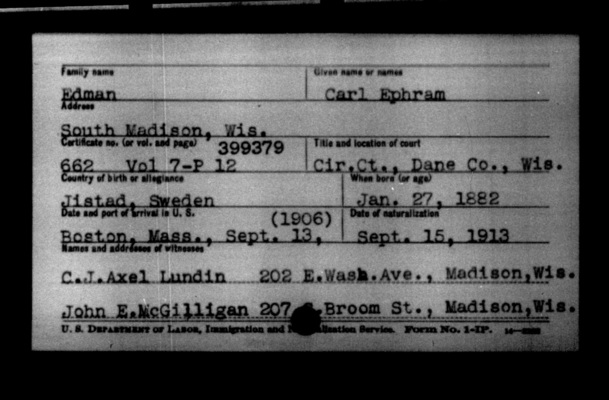 Family name Given name or names
Edman Carl Ephram
Address
South Madison, Wis.
Certificate no. (or vol. and page) 399379 Title and location of court
662 Vol 7-P 12 Cir.Ct., Dane Co., Wis.
Country of birth or allegiance When born (or age)
Jistad, Sweden Jan. 27, 1882
Date and port of arrival in U. S. (1906) Date of naturalization
Boston, Mass., Sept. 13, Sept. 15, 1913
Names and addresses of witnesses
C.J.Axel Lundin 202 E.Wash.Ave., Madison,Wis.
John E.McGilligan 207 Broom St., Madison,Wis.
U. S. Department of Labor, Immigration and Service. Form No. 1-IP.